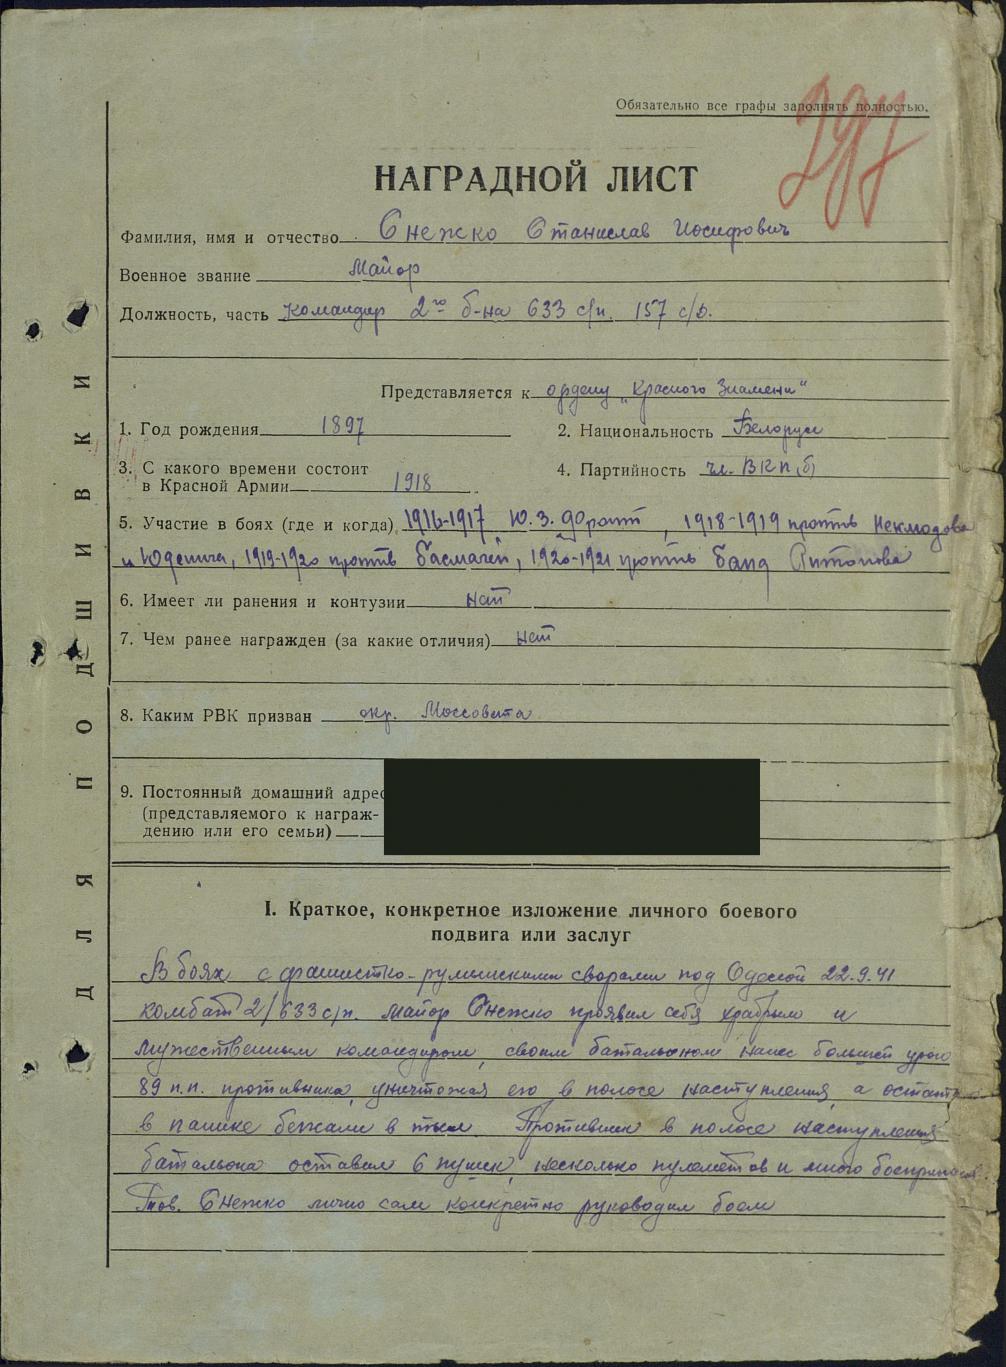 Обязательно все графы заполнять полностью.
297
НАГРАДНОЙ ЛИСТ
Фамилия, имя и отчество Снежко Станислав Иосифович
Военное звание Майор
Должность, часть Командир 2го б-на 633 с/п. 157 с/д.
Представляется к ордену „Красного Знамени"
1. Год рождения 1897
2. Национальность Белорус
3. С какого времени состоит
в Красной Армии 1918
4. Партийность чл. ВКП(б)
5. Участие в боях (где и когда) 1916-1917 Ю.З. Фронт, 1918-1919 против
и Юденича, 1919-1920 против басмачей, 1920-1921 против банд Антонова
6. Имеет ли ранения и контузии нет
7. Чем ранее награжден (за какие отличия) нет
8. Каким РВК призван окр. Моссовета
9. Постоянный домашний адрес
(представляемого к награж-
дению или его семьи)
I. Краткое, конкретное изложение личного боевого
подвига или заслуг
В боях с фашистко-румынскими сворами под Одессой 22.9.41
комбат 2/633 с/п. майор Снежко проявил себя храбрым и
мужественным командиром, своим батальоном нанес большой урон
89 п.п. противника, уничтожая его в полосе наступления, а
в панике бежали в тыл. Противник в полосе наступления
батальона оставил 6 пушек, несколько пулеметов и много боеприпасов.
Тов. Снежко лично сам конкретно руководил боем
ДЛЯ ПОДШИВКИ